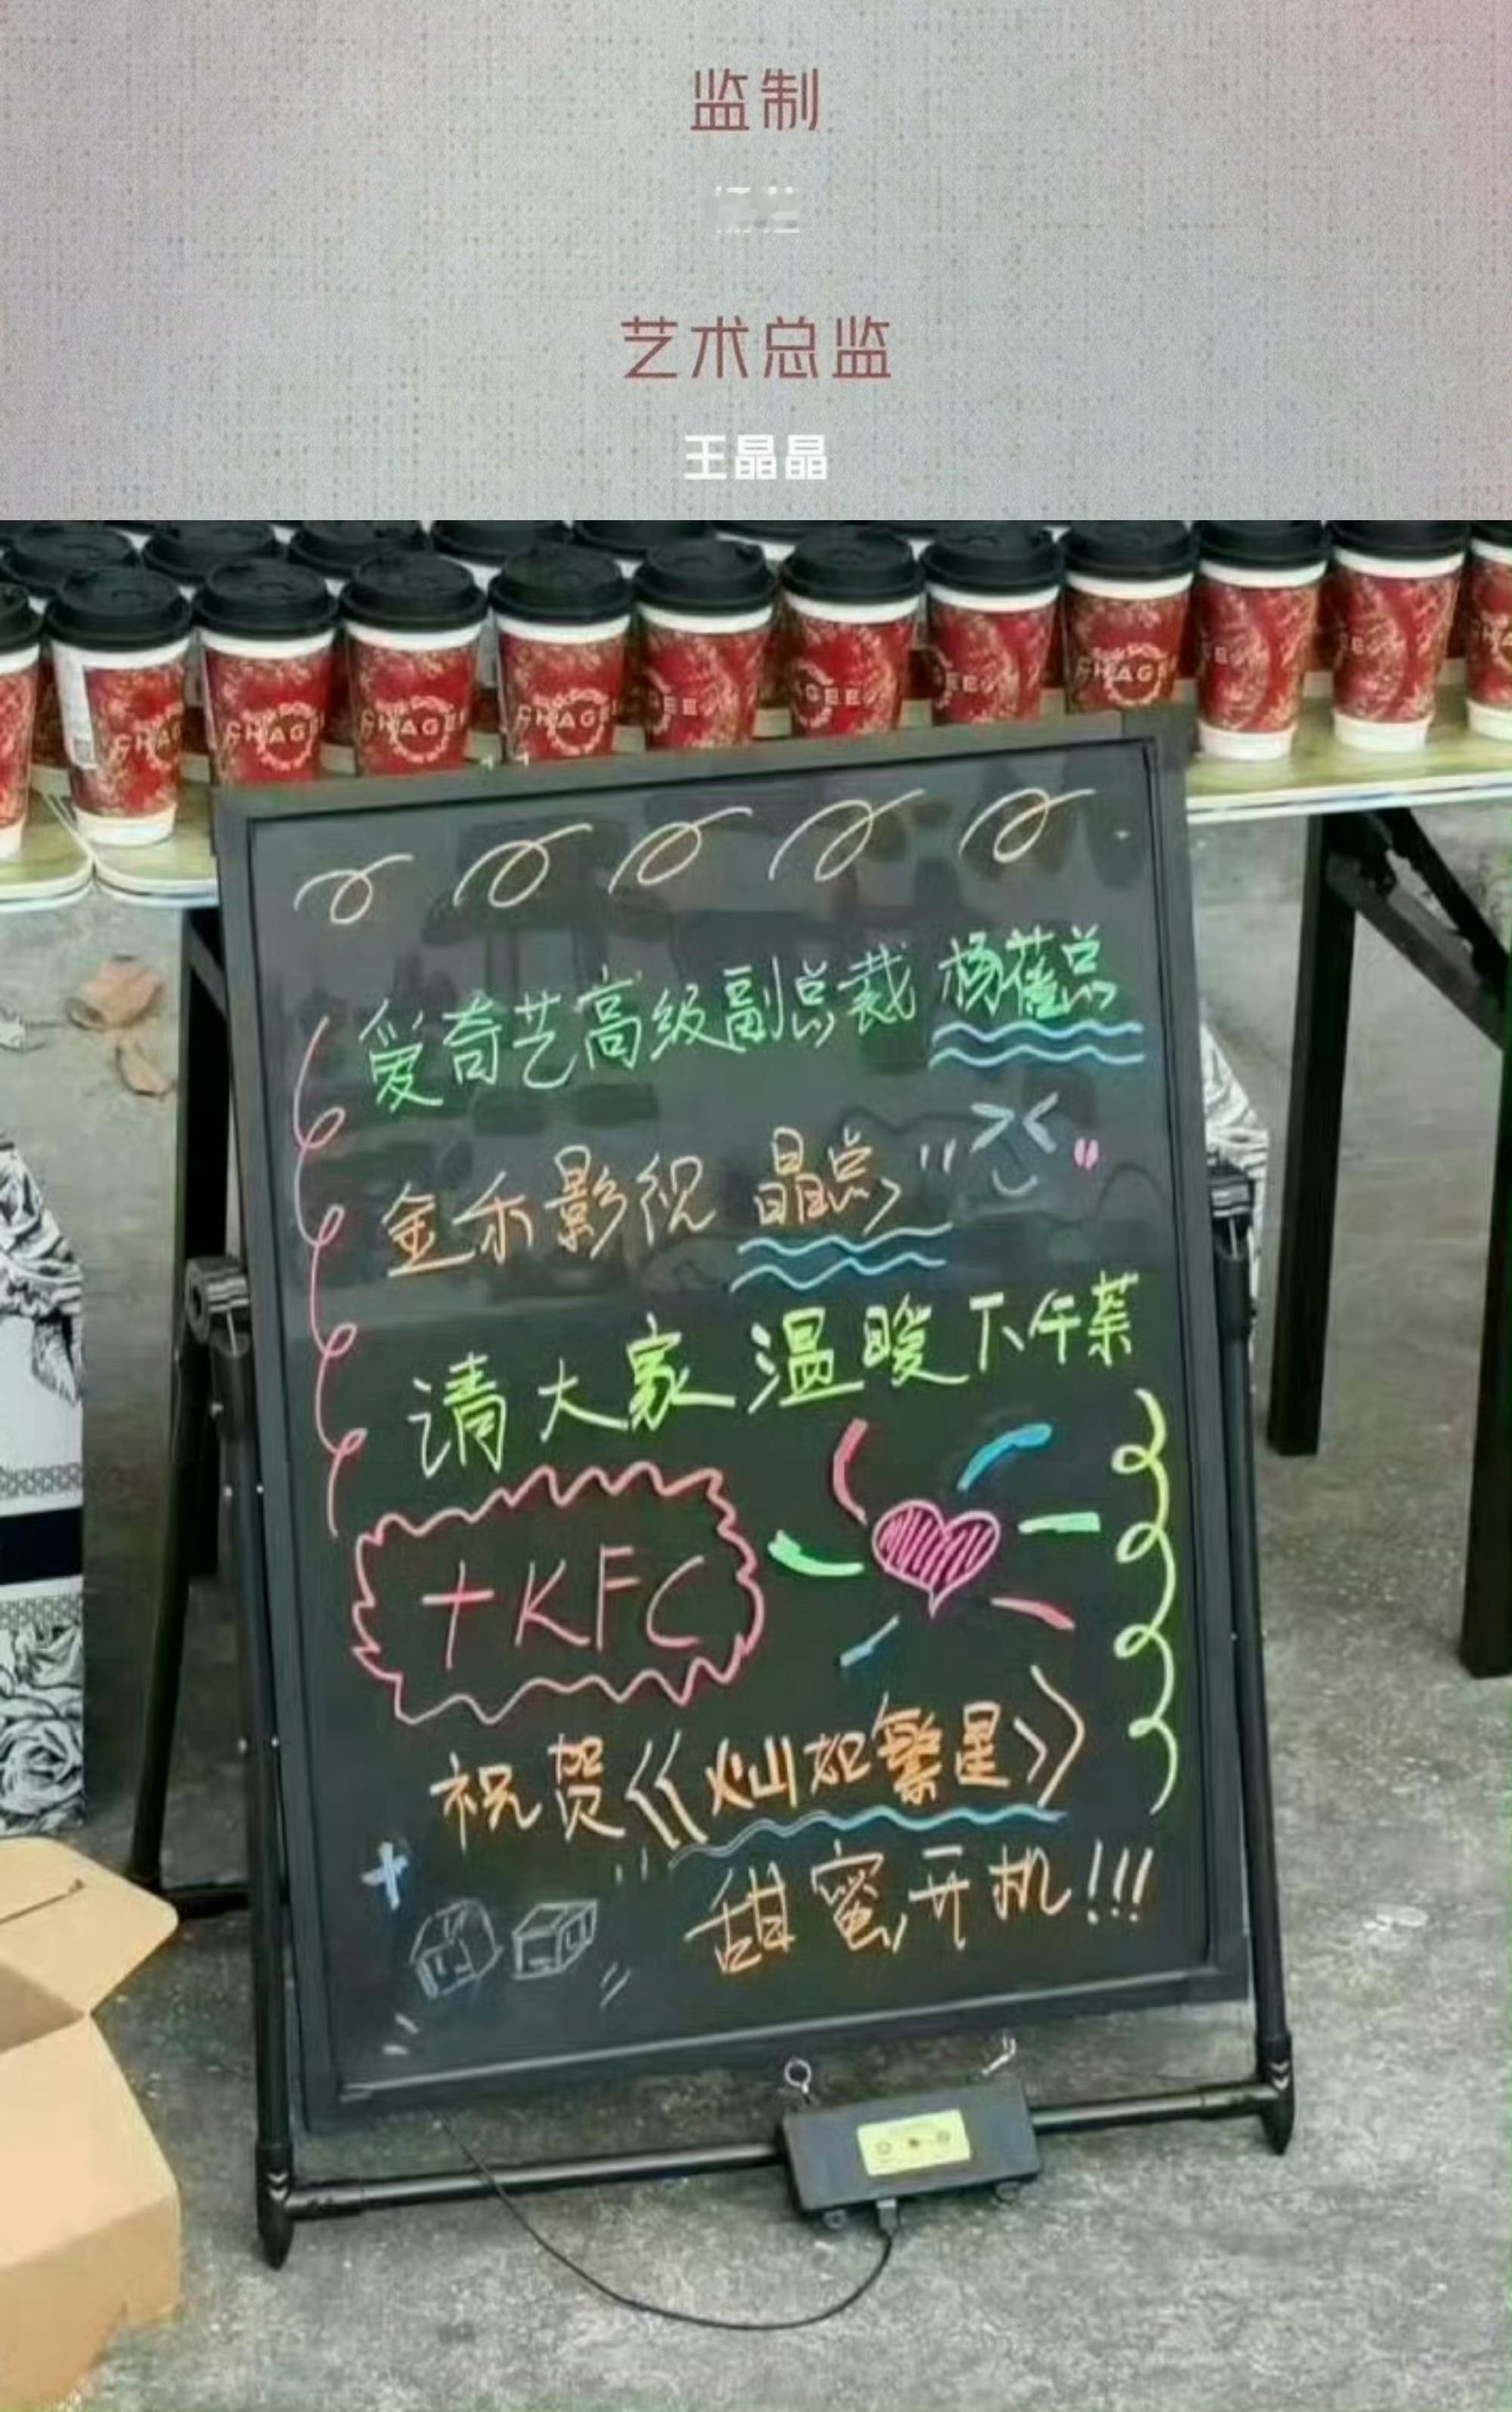 监制
艺术总监
王晶晶
CHAGEE
CHAGEE
CHAGEE
CHAGEE
爱奇艺高级副总裁 杨蓓总
金禾影视 晶总
请大家温暖下午茶
+KFC
祝贺《灿如繁星》
甜蜜开机!!!